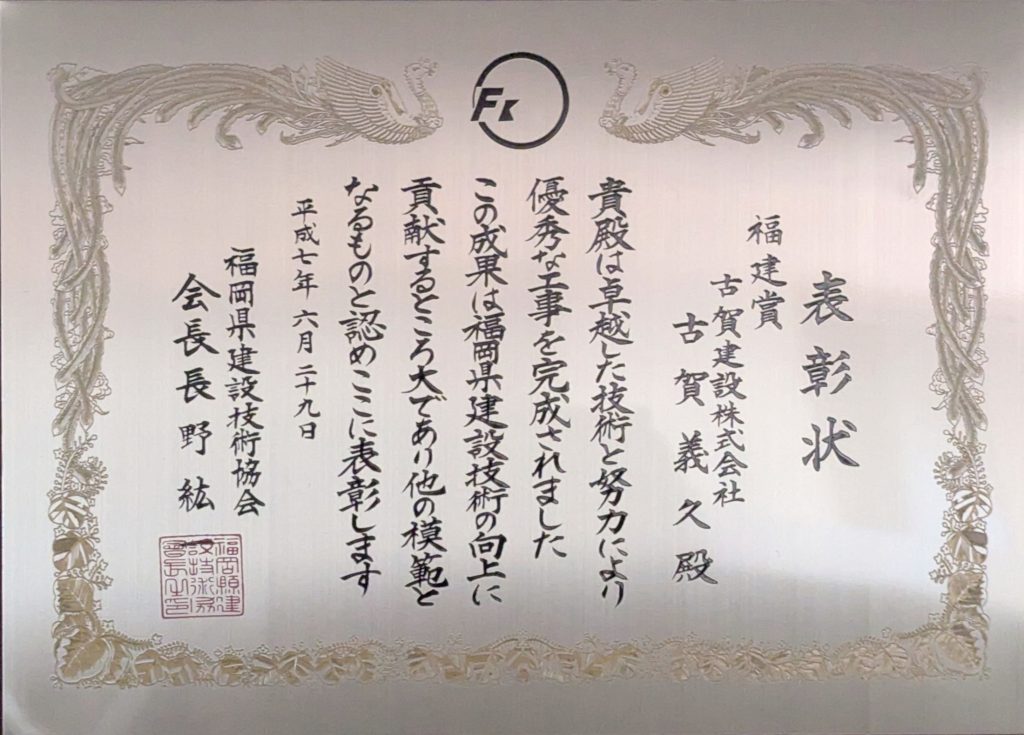 FK
表彰状
福建賞
古賀建設株式会社
古賀義久殿
貴殿は卓越した技術と努力により
優秀な工事を完成されました
この成果は福岡県建設技術の向上に
貢献するところ大であり他の模範と
なるものと認めここに表彰します
平成七年六月二十九日
福岡県建設技術協会
会長長野紘
福岡縣建
設技術協
會長之印